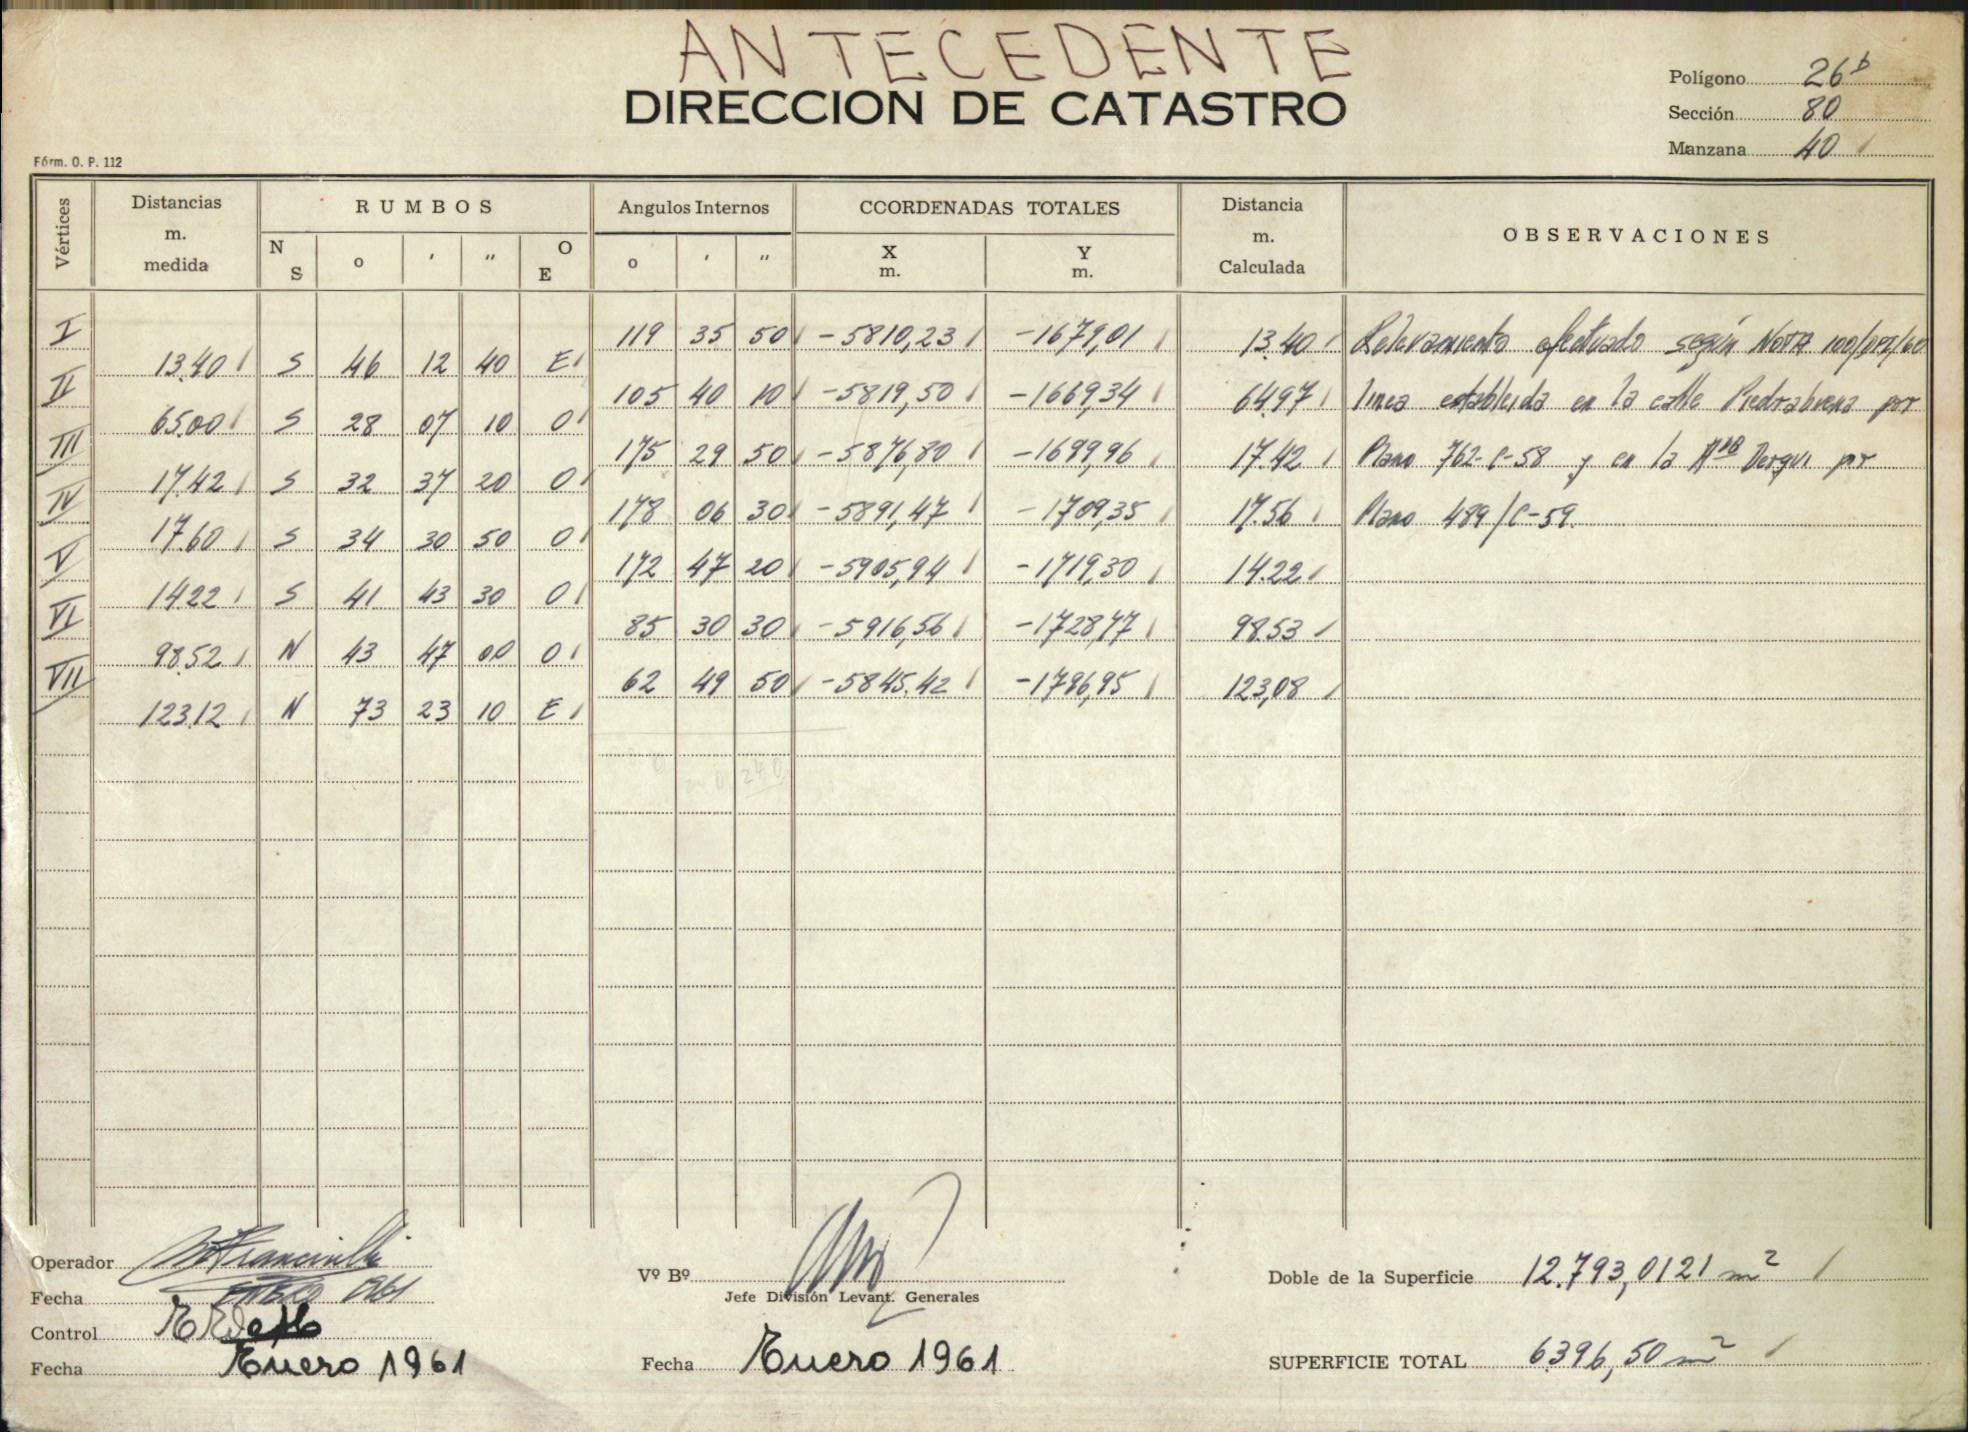 ANTECEDENTE
DIRECCION DE CATASTRO
Polígono 26b
Sección 80
Manzana 40
Fórm. O. P. 112
Vértices Distancias m. medida RUMBOS N S o ' " O E Angulos Internos o ' " CCORDENADAS TOTALES X m. Y m. Distancia m. Calculada OBSERVACIONES
I 119 35 50 -5810,23 -1679,01 13.40 Relevamiento efectuado según Nota
13.40 S 46 12 40 E
II 105 40 10 -5819,50 -1669,34 64.97 línea establecida en la calle Piedrabuena por
65.00 S 28 07 10 O
III 175 29 50 -5876,80 -1699,96 17.42 Plano 762-C-58 y en la por
17.42 S 32 37 20 O
IV 178 06 30 -5891,47 -1709,35 17.56 Plano 489/C-59.
17.60 S 34 30 50 O
V 172 47 20 -5905,94 -1719,30 14.22
14.22 S 41 43 30 O
VI 85 30 30 -5916,56 -1728,77 98.53
98.52 N 43 47 00 O
VII 62 49 50 -5845.42 -1796,95 123,08
123.12 N 73 23 10 E
Operador
Fecha Enero 1961
Control
Fecha Enero 1961
Vº Bº
Jefe División Levant. Generales
Fecha Enero 1961
Doble de la Superficie 12.793,0121 m2
SUPERFICIE TOTAL 6396,50 m2